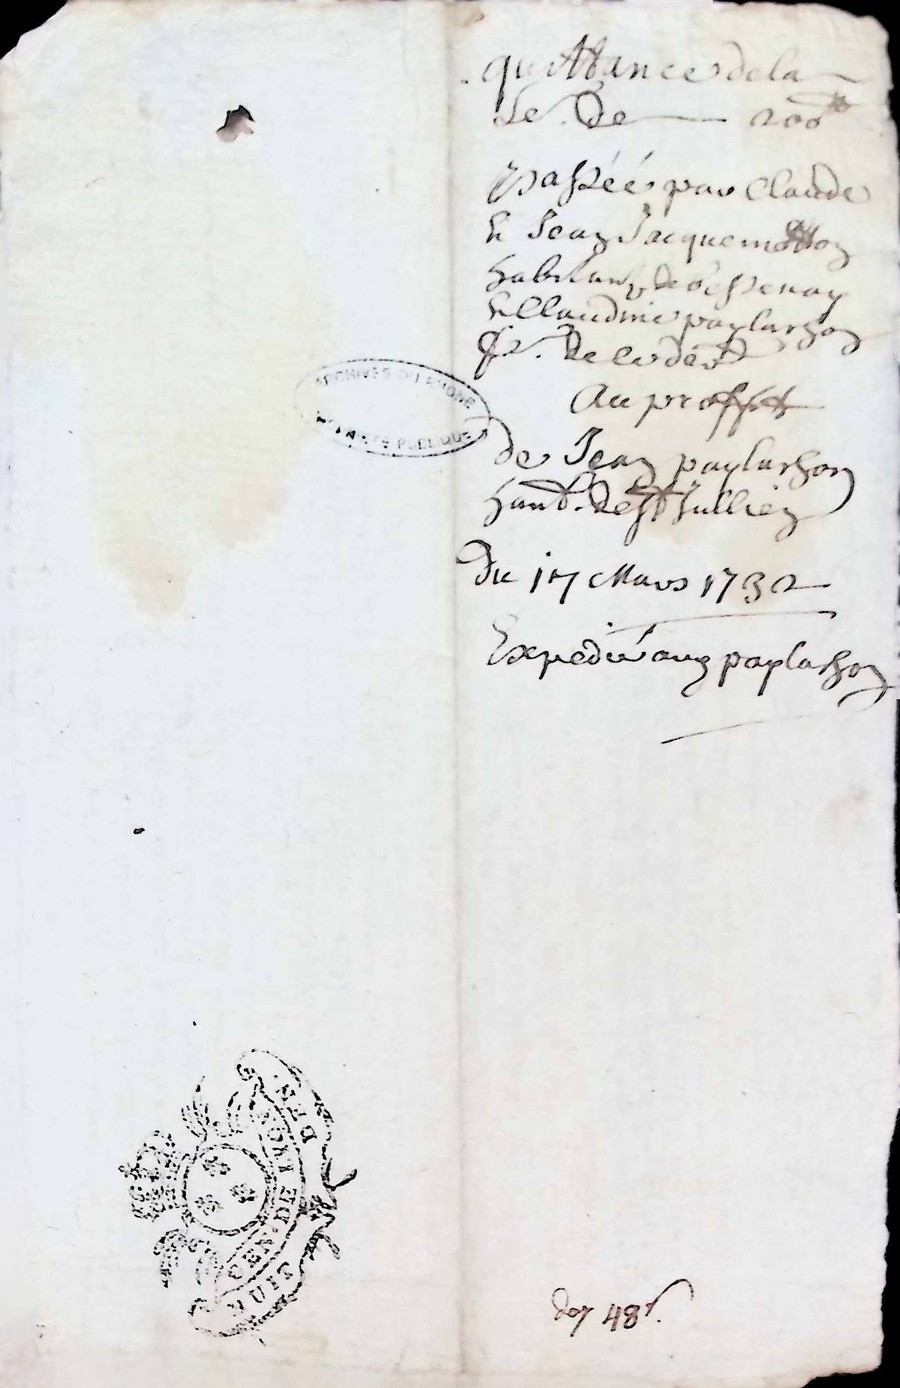 quittance de la
Se. De 200
passéé par Claude
& Jean Jacquemotton
habitants de Bessenay
& Claudine paylarson
De
Au proffit
de Jean paylarson
habt. de St Jullien
Du 17 Mars 1732
Expedié aux paylarson
ARCHIVES DU RHONE
PUBLIQUE
GEN. DE LYON
HUIT DEN.
48